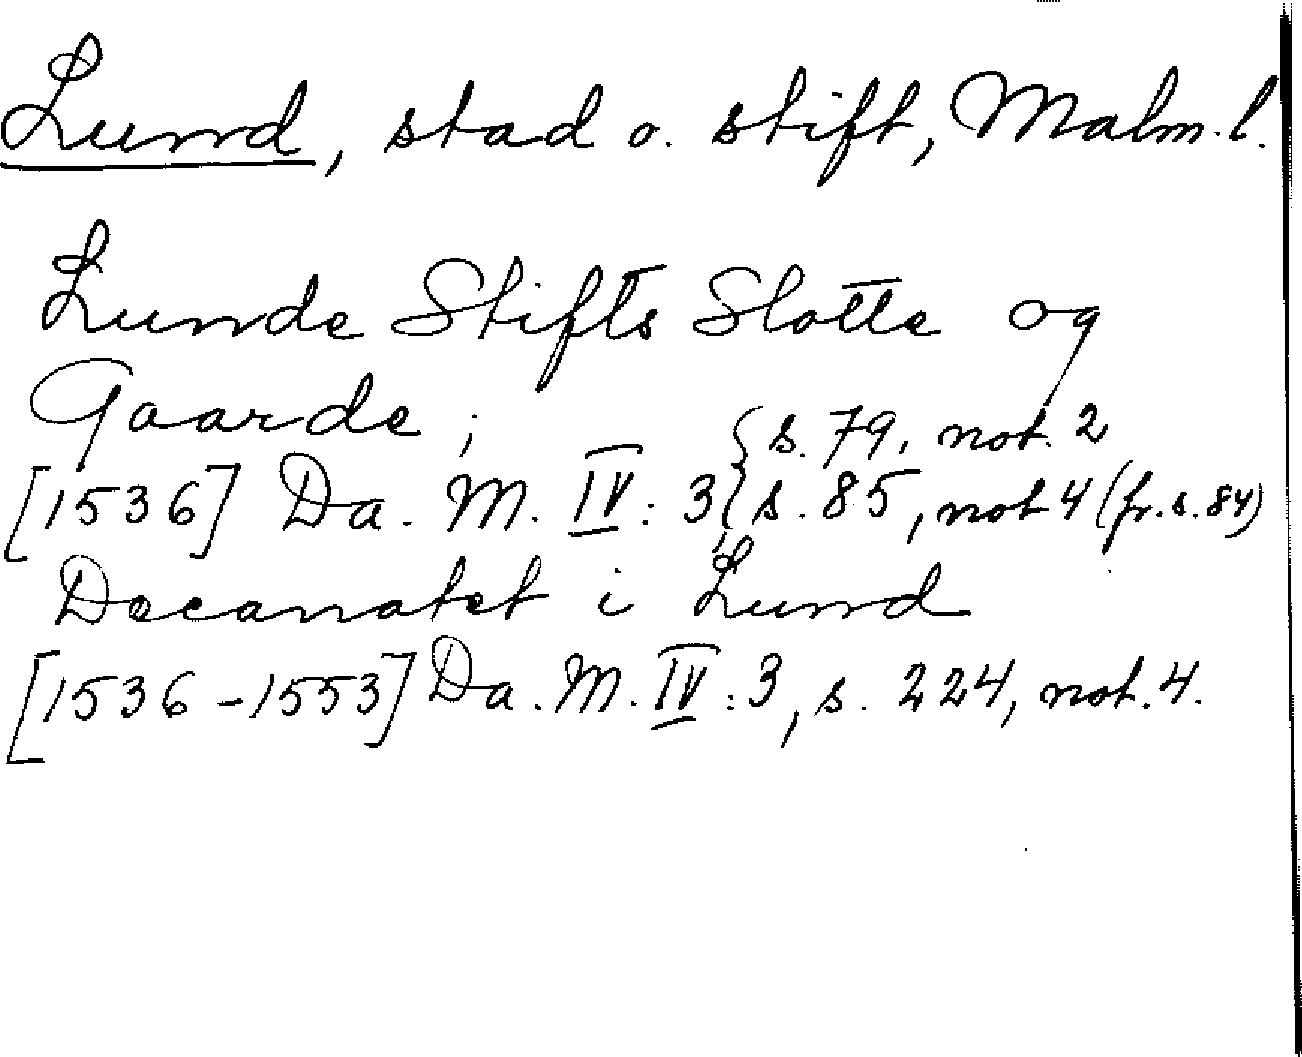 Lund, stad o. stift, Malm. l.
Lunde Stifts Slotte og
Gaarde;
{ s. 79, not. 2
[1536] Da. M. IV: 3, { s. 85, not 4 (fr. s. 84)
Decanatet i Lund
[1536-1553] Da. M. IV: 3, s. 224, not. 4.